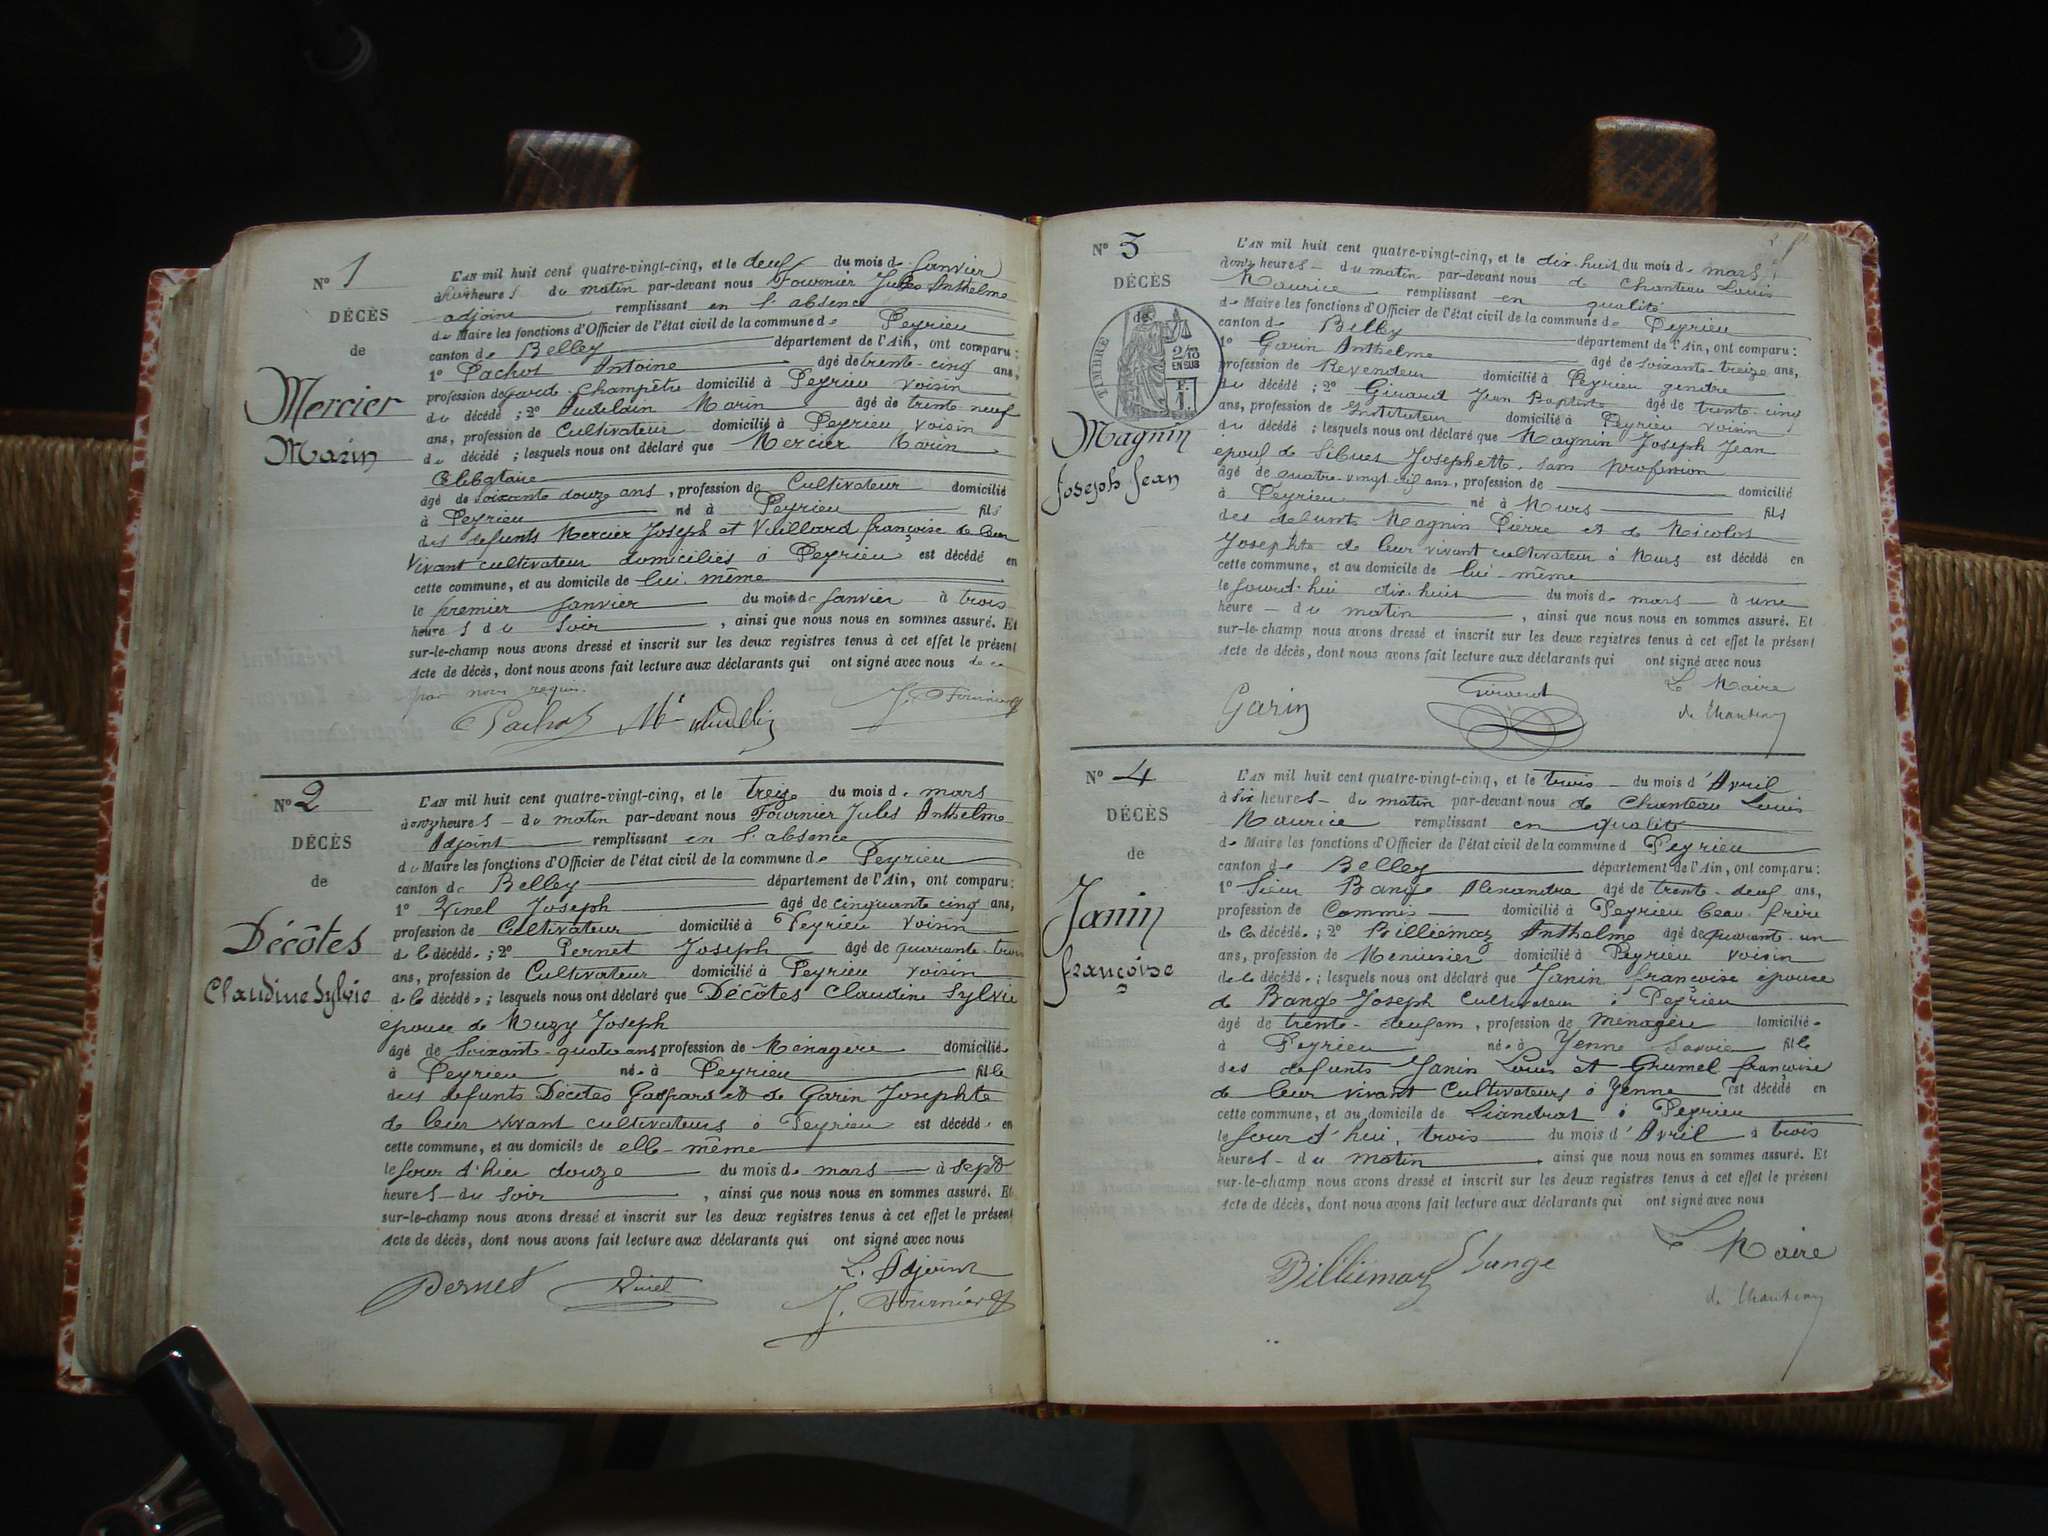 N° 1
DÉCÈS
de
Mercier
Marin
L'AN mil huit cent quatre-vingt-cinq, et le deux du mois de Janvier
à heures du matin par-devant nous Fournier Jules Anthelme
adjoint remplissant en l'absence
du Maire les fonctions d'Officier de l'état civil de la commune de Peyrieu
canton de Belley département de l'Ain, ont comparu :
1° Pachot Antoine âgé de trente-cinq ans,
profession de garde-champêtre domicilié à Peyrieu voisin
du décédé ; 2° Audelain Marin âgé de trente-neuf
ans, profession de Cultivateur domicilié à Peyrieu voisin
du décédé ; lesquels nous ont déclaré que Mercier Marin
Célibataire
âgé de soixante douze ans, profession de Cultivateur domicilié
à Peyrieu né à Peyrieu fils
des defunts Mercier Joseph et Vuillard françoise de leur
Vivant cultivateur domiciliés à Peyrieu est décédé en
cette commune, et au domicile de lui-même
le premier Janvier du mois de Janvier à trois
heures du Soir, ainsi que nous nous en sommes assuré. Et
sur-le-champ nous avons dressé et inscrit sur les deux registres tenus à cet effet le présent
Acte de décès, dont nous avons fait lecture aux déclarants qui ont signé avec nous de ce
par nous requis.
Pachot J. Fournier
N° 2
DÉCÈS
de
Décôtes
Claudine Sylvie
L'AN mil huit cent quatre-vingt-cinq, et le treize du mois de mars
à onze heures du matin par-devant nous Fournier Jules Anthelme
Adjoint remplissant en l'absence
du Maire les fonctions d'Officier de l'état civil de la commune de Peyrieu
canton de Belley département de l'Ain, ont comparu :
1° Vinel Joseph âgé de cinquante cinq ans,
profession de Cultivateur domicilié à Peyrieu voisin
de la décédée ; 2° Pernet Joseph âgé de quarante-trois
ans, profession de Cultivateur domicilié à Peyrieu voisin
de la décédée ; lesquels nous ont déclaré que Décôtes Claudine Sylvie
épouse de Muzy Joseph
âgé de Soixante-quatre ans profession de Ménagère domiciliée
à Peyrieu née à Peyrieu fille
des defunts Décôtes Gaspard et de Garin Josephte
de leur vivant cultivateurs à Peyrieu est décédée en
cette commune, et au domicile de elle-même
le Jour d'hier douze du mois de mars à sept
heures du Soir, ainsi que nous nous en sommes assuré. Et
sur-le-champ nous avons dressé et inscrit sur les deux registres tenus à cet effet le présent
Acte de décès, dont nous avons fait lecture aux déclarants qui ont signé avec nous
L'Adjoint
Pernet Vinel J. Fournier
N° 3
DÉCÈS
de
TIMBRE
2/10
EN SUS
Magnin
Joseph Jean
L'AN mil huit cent quatre-vingt-cinq, et le dix-huit du mois de mars
à onze heures du matin par-devant nous de Chanteau Louis
Maurice remplissant en qualité
de Maire les fonctions d'Officier de l'état civil de la commune de Peyrieu
canton de Belley département de l'Ain, ont comparu :
1° Garin Anthelme âgé de soixante-treize ans,
profession de Revendeur domicilié à Peyrieu gendre
du décédé ; 2° Giraud Jean Baptiste âgé de trente-cinq
ans, profession de Instituteur domicilié à Peyrieu voisin
du décédé ; lesquels nous ont déclaré que Magnin Joseph Jean
époux de Sibuet Josephette sans profession
âgé de quatre-vingt ans, profession de domicilié
à Peyrieu né à Murs fils
des defunts Magnin Pierre et de Nicolas
Josephte de leur vivant cultivateur à Murs est décédé en
cette commune, et au domicile de lui-même
le Jourd'hui dix-huit du mois de mars à une
heure du matin, ainsi que nous nous en sommes assuré. Et
sur-le-champ nous avons dressé et inscrit sur les deux registres tenus à cet effet le présent
Acte de décès, dont nous avons fait lecture aux déclarants qui ont signé avec nous
Le Maire
Garin Giraud
N° 4
DÉCÈS
de
Janin
françoise
L'AN mil huit cent quatre-vingt-cinq, et le trois du mois d'Avril
à six heures du matin par-devant nous de Chanteau Louis
Maurice remplissant en qualité
de Maire les fonctions d'Officier de l'état civil de la commune d Peyrieu
canton de Belley département de l'Ain, ont comparu :
1° Sieur Bange Alexandre âgé de trente-deux ans,
profession de Commis domicilié à Peyrieu beau-frère
de la décédée ; 2° Billiemaz Anthelme âgé de quarante-un
ans, profession de Menuisier domicilié à Peyrieu voisin
de la décédée ; lesquels nous ont déclaré que Janin françoise épouse
de Bange Joseph Cultivateur à Peyrieu
âgé de trente-deux ans, profession de Ménagère domiciliée
à Peyrieu née à Yenne Savoie fille
des defunts Janin Louis et Grumel françoise
de leur vivant Cultivateurs à Yenne est décédé en
cette commune, et au domicile de Liandrat à Peyrieu
le Jour d'hui, trois du mois d'Avril à trois
heures du matin, ainsi que nous nous en sommes assuré. Et
sur-le-champ nous avons dressé et inscrit sur les deux registres tenus à cet effet le présent
Acte de décès, dont nous avons fait lecture aux déclarants qui ont signé avec nous
Le Maire
Billiemaz Bange